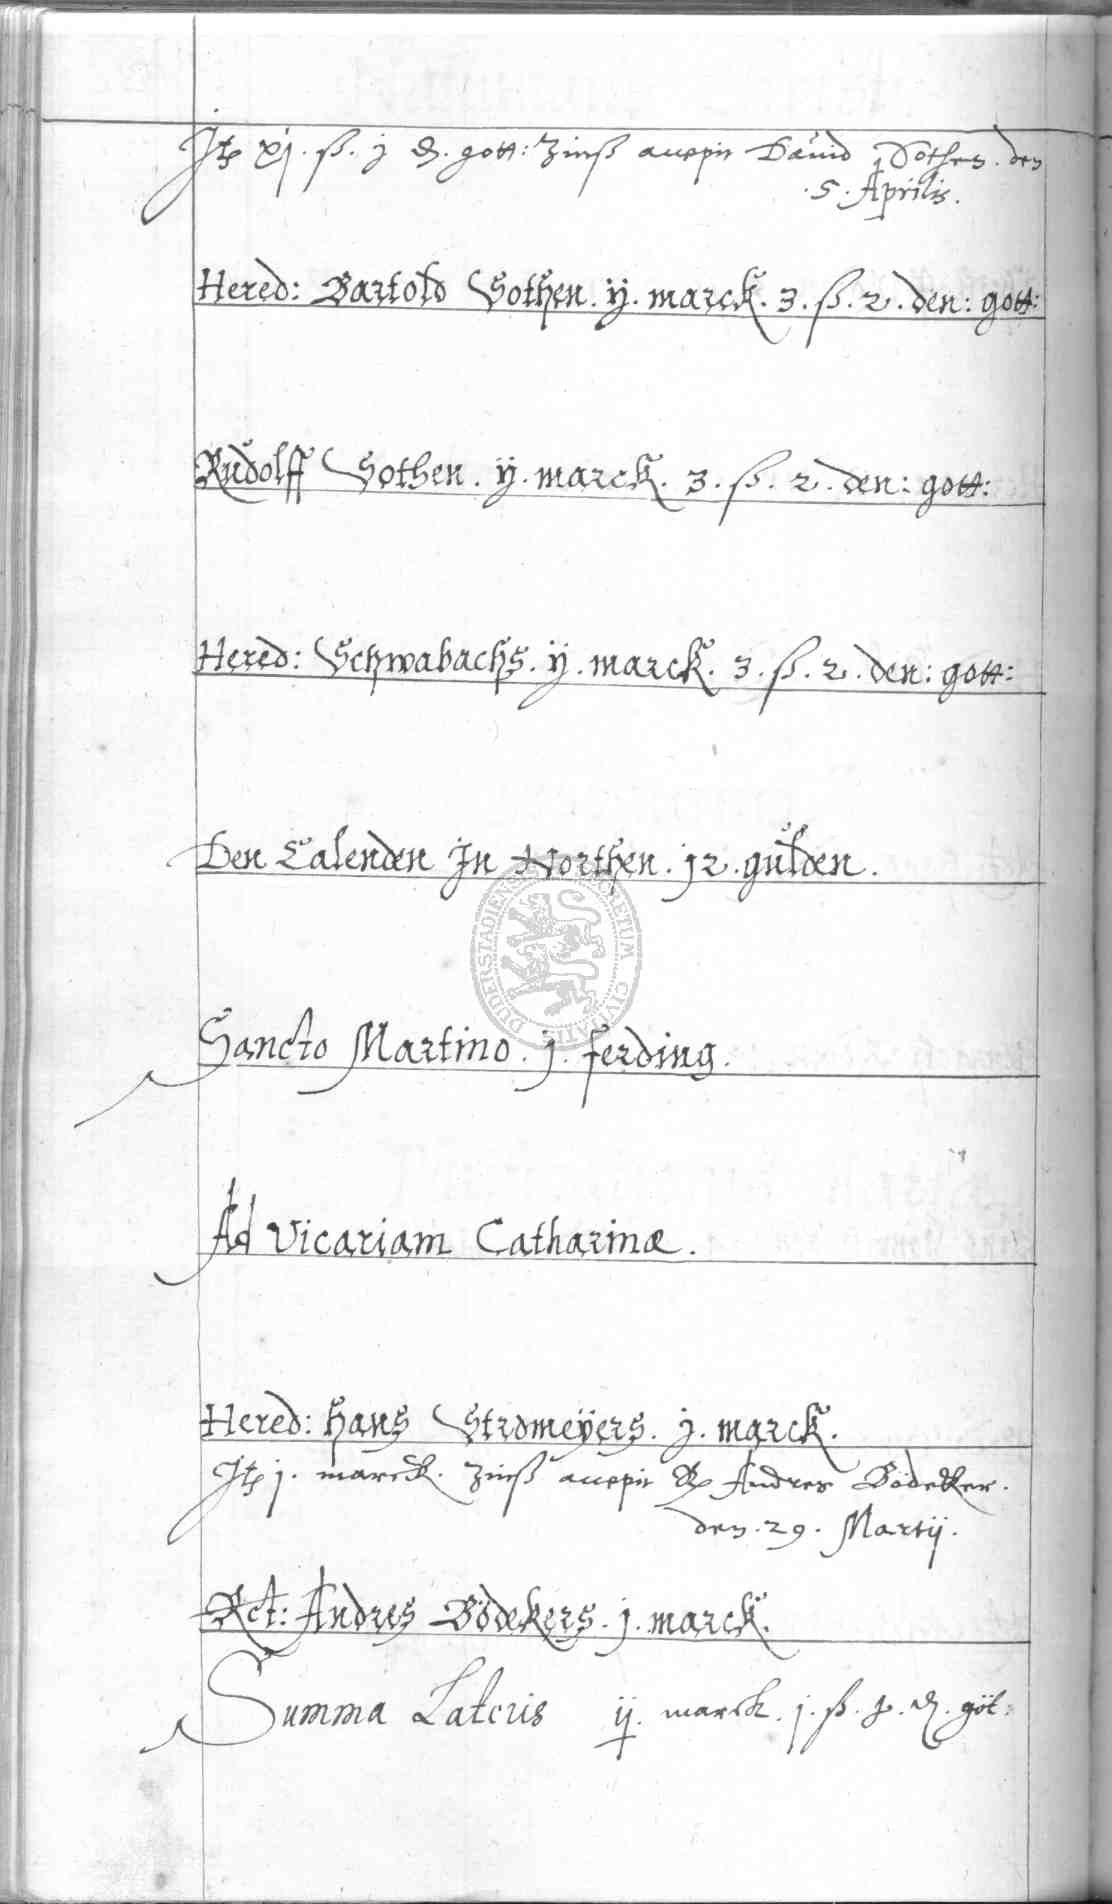 Jtp xj. ß. j ₰. gott: Zinß accepit Dauid Sothen. den
.5. Aprilis.
Hered: Bartold Sothen. ij. marck. 3. ß. 2. den: gott:
Rudolff Sothen. ij. marck. 3. ß. 2. den: gott:
Hered: Schwabachs. ij. marck. 3. ß. 2. den: gott:
Den Calenden Jn Northen. j2. gulden.
DUDERSTADIENSIS SECRETUM CIVITATIS
Sancto Martino. j. ferding.
Ad Vicariam Catharinæ.
Hered: Hans Stromeÿers. j. marck.
Jtp j. marck. Zinß accepit Andres Bödeker.
den. 29. Martij.
Rct: Andres Bödekers. j. marck.
Summa Lateris ij. marck. j. ß. ₰. göt: